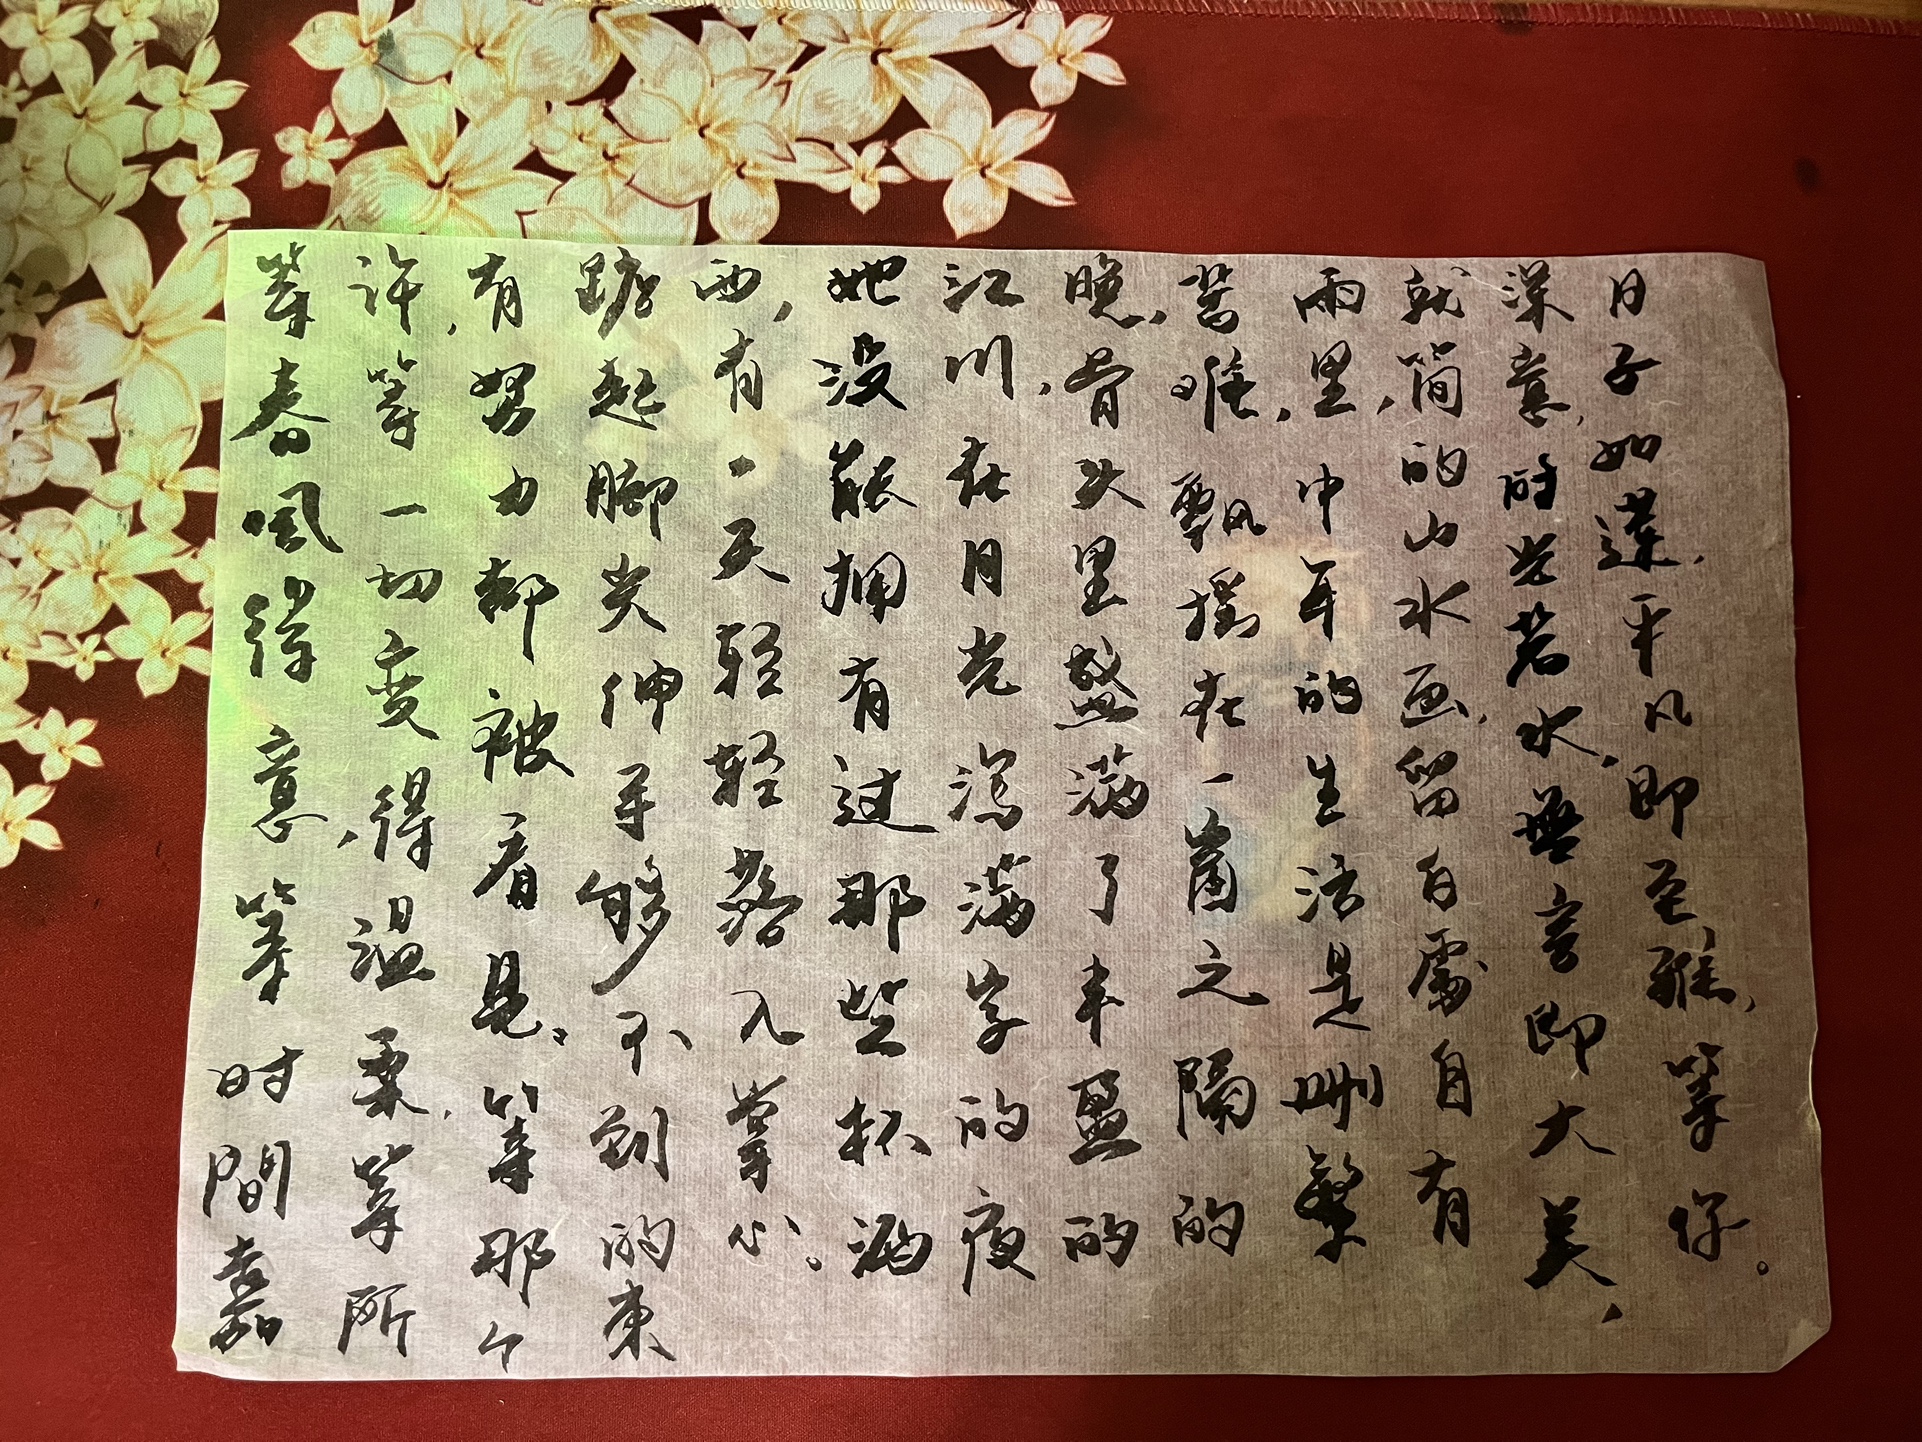 等春風得意，等时間嘉
许，等一切变得温柔，等所
有努力都被看見。等那个
踮起脚尖伸手够不到的東
西，有一天轻轻落入掌心。
她没能拥有过那些杯酒
江川，在月光泻满字的夜
晚，骨头里盛满了丰盈的
舊唯，飘摇在一窗之隔的
雨里，中年的生活是删繁
就简的山水画，留白處自有
深意，时光若水，無言即大美，
日子如莲，平凡即至雅，等你。